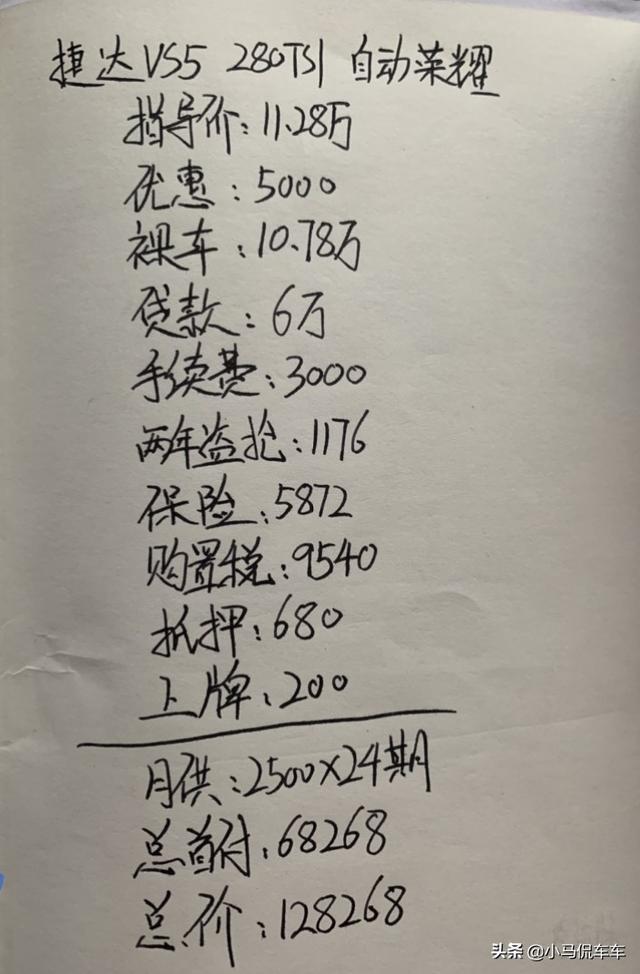 捷达VS5 280TSI 自动荣耀
指导价：11.28万
优惠：5000
裸车：10.78万
贷款：6万
手续费：3000
两年盗抢：1176
保险：5872
购置税：9540
抵押：680
上牌：200
月供：2500×24期
总首付：68268
总价：128268
头条 @小马侃车车